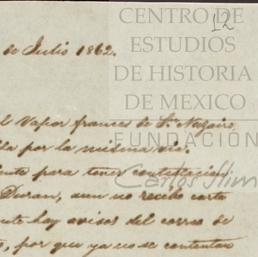 CENTRO DE
ESTUDIOS
DE HISTORIA
DE MEXICO
FUNDACIÓN
Carlos Slim
12
de Julio 1862.
el Vapor frances de St. Nazaire,
por la misma via.
para tener contestacion
Duran, aun no recibo carta
hay avisos del correo de
por que ya no se contentan